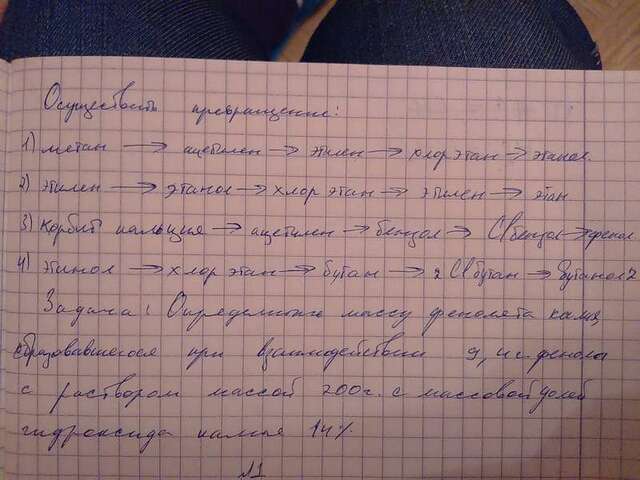 Осуществить превращение:
1) метан → ацетилен → этилен → хлорэтан → этанол.
2) этилен → этанол → хлорэтан → этилен → этан
3) карбит кальция → ацетилен → бензол → Clбензол → фенол
4) этанол → хлорэтан → бутан → 2Clбутан → Бутанол2
Задача: Определить массу фенолята калия,
образовавшегося при взаимодействии 9,4г. фенола
с раствором массой 200г. с массовой долей
гидроксида калия 14%.
№1